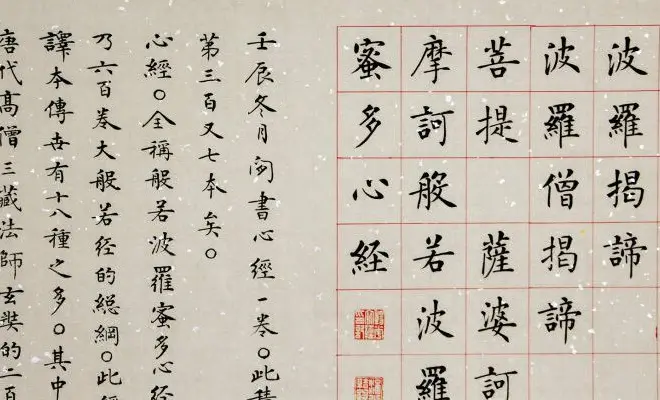 波羅揭諦
波羅僧揭諦
菩提 薩婆訶
摩訶般若波羅
蜜多心経
壬辰冬月書心經一卷。此
第三百又七本矣。
心經。全稱般若波羅蜜多心経
乃六百卷大般若経的総綱。此
譯本傳世有十八種之多。其中
唐代高僧三藏法師玄奘的二百